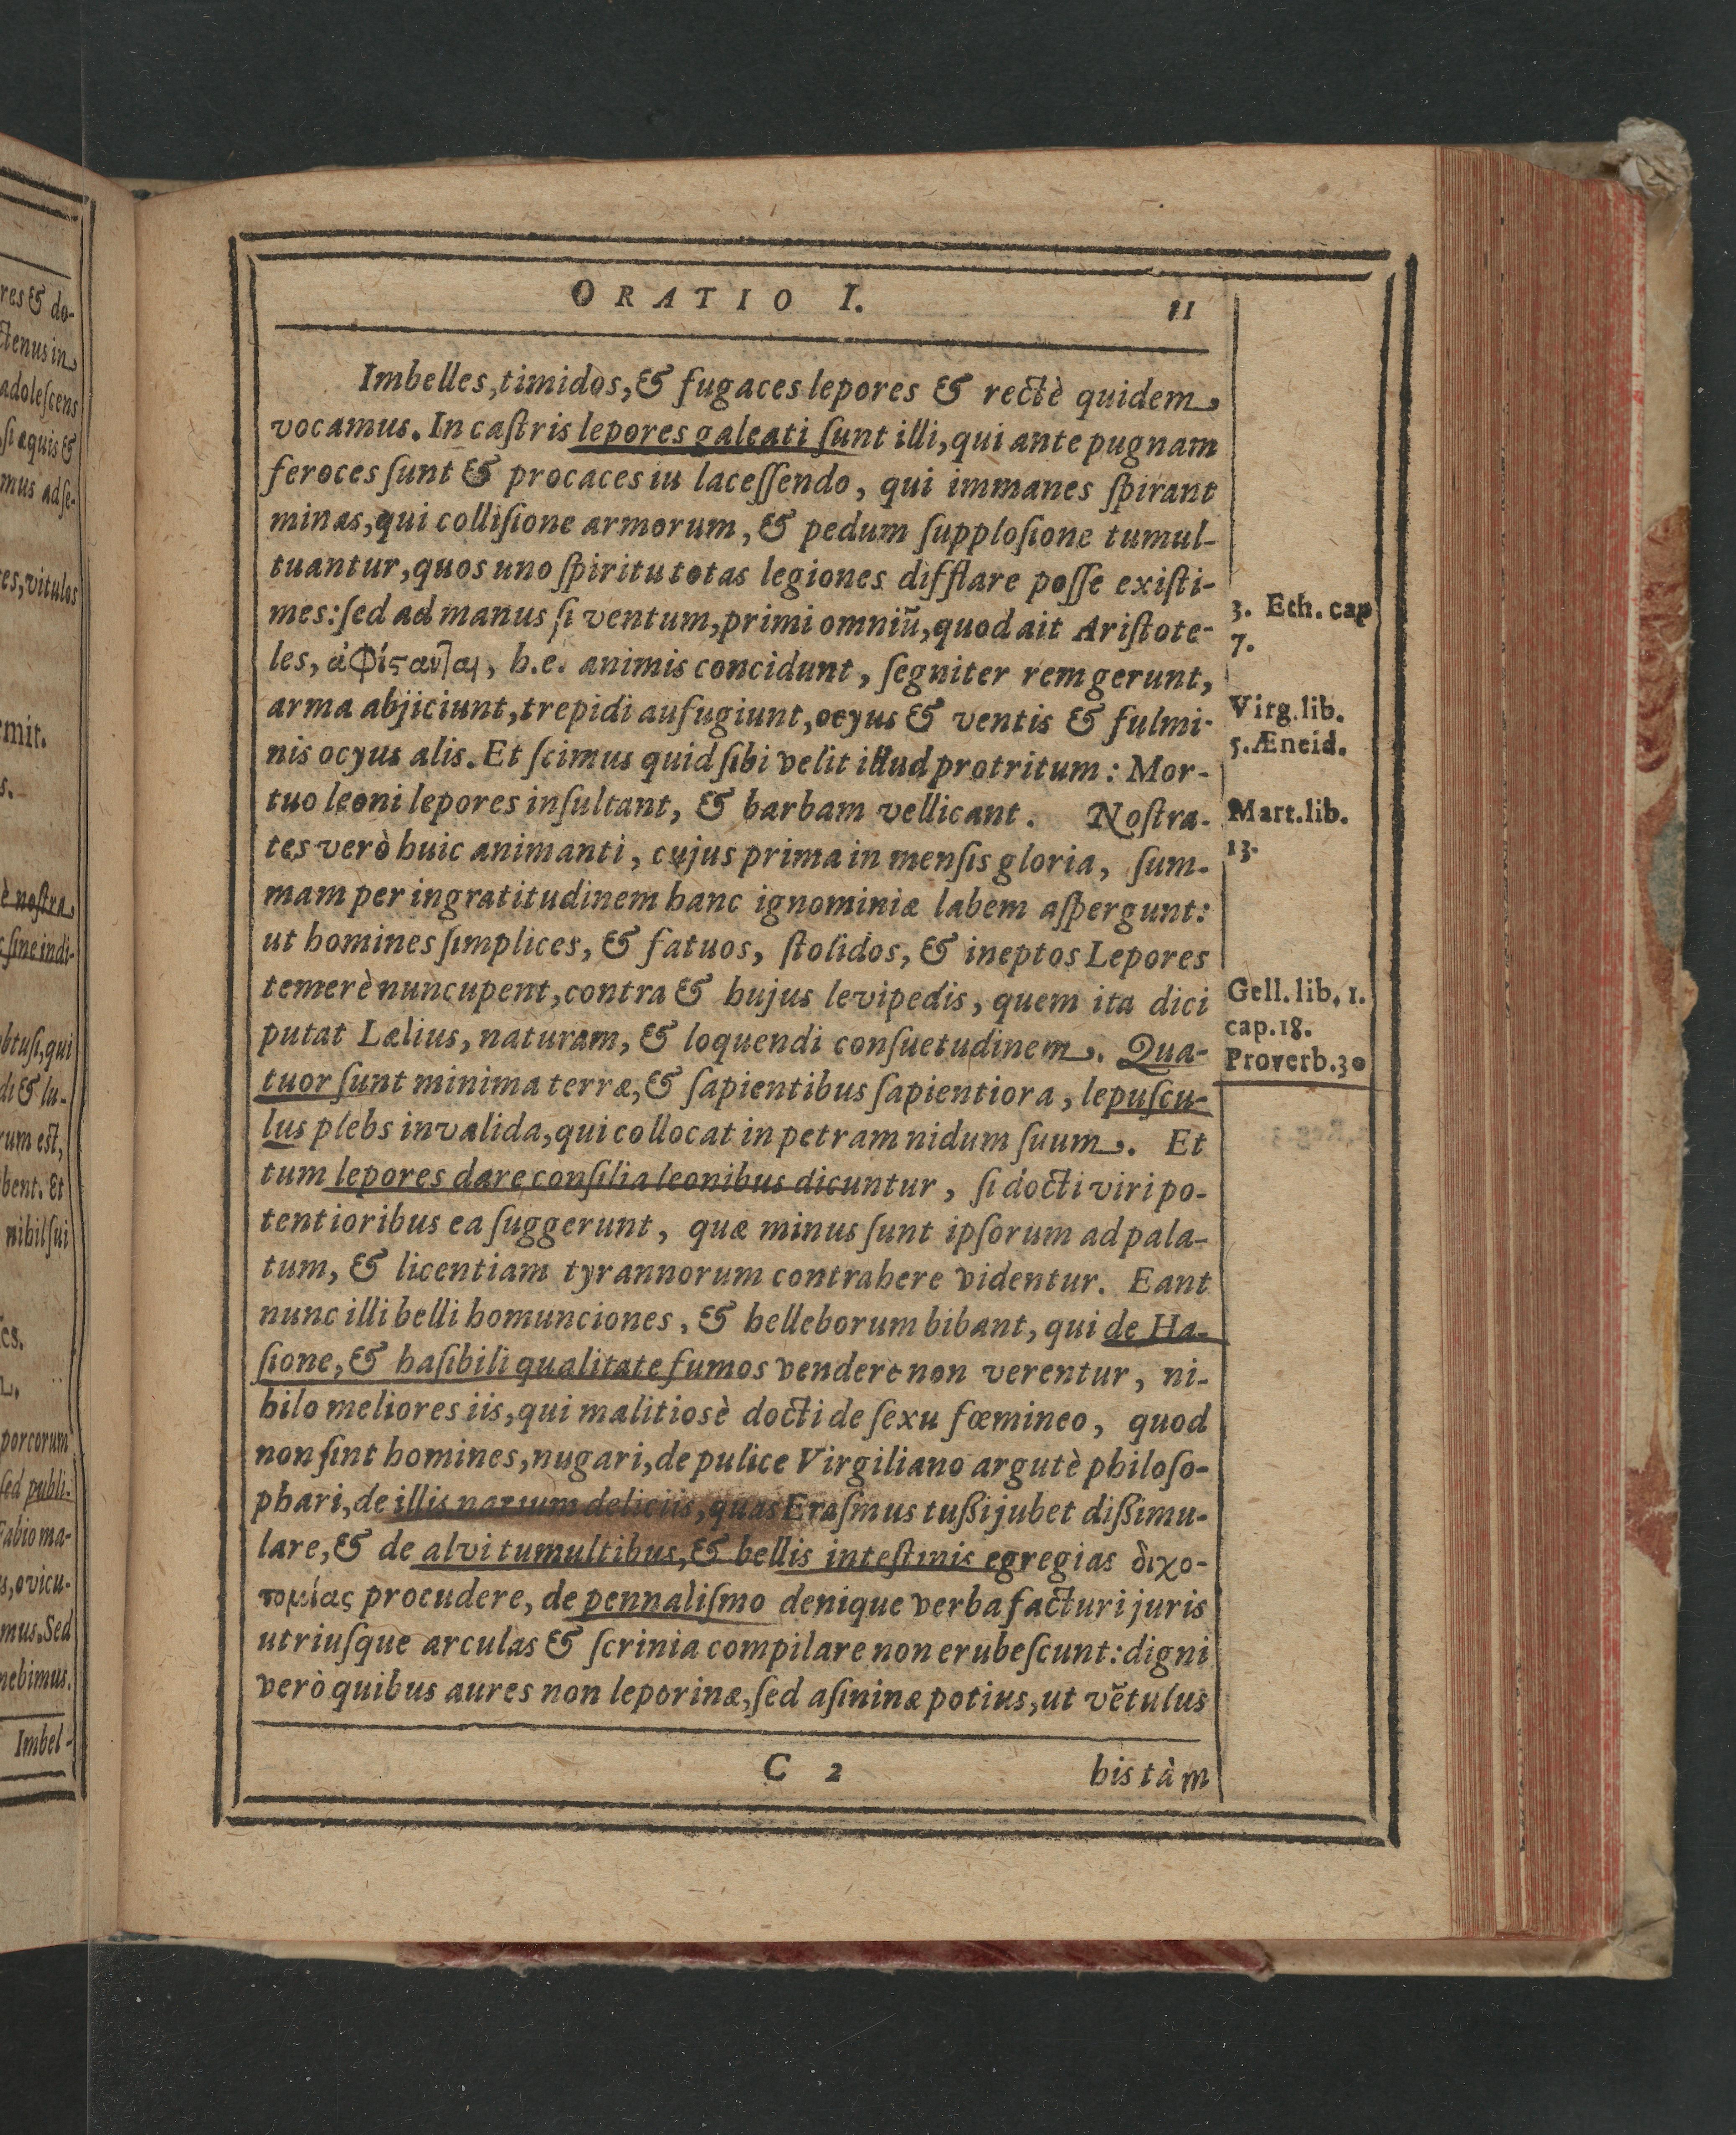 ORATIO I. 11
Imbelles, timidos, & fugaces lepores & rectè quidem
vocamus. In caſtris lepores galeati ſunt illi, qui ante pugnam
feroces ſunt & procaces iu laceſſendo, qui immanes ſpirant
minas, qui colliſione armorum, & pedum ſupploſione tumul-
tuantur, quos uno ſpiritu totas legiones difflare poſſe exiſti-
mes: ſed ad manus ſi ventum, primi omniũ, quod ait Ariſtote-
les, ἀφίςανται, h.e. animis concidunt, ſegniter rem gerunt,
arma abjiciunt, trepidi aufugiunt, ocyus & ventis & fulmi-
nis ocyus alis. Et ſcimus quid ſibi velit illud protritum: Mor-
tuo leoni lepores inſultant, & barbam vellicant. Noſtra-
tes verò huic animanti, cujus prima in menſis gloria, ſum-
mam per ingratitudinem hanc ignominiæ labem aſpergunt:
ut homines ſimplices, & fatuos, ſtolidos, & ineptos Lepores
temerè nuncupent, contra & hujus levipedis, quem ita dici
putat Lælius, naturam, & loquendi conſuetudinem. Qua-
tuor ſunt minima terræ, & ſapientibus ſapientiora, lepuſcu-
lus plebs invalida, qui collocat in petram nidum ſuum. Et
tum lepores dare conſilia leonibus dicuntur, ſi docti viri po-
tentioribus ea ſuggerunt, quæ minus ſunt ipſorum ad pala-
tum, & licentiam tyrannorum contrahere videntur. Eant
nunc illi belli homunciones, & helleborum bibant, qui de Ha-
ſione, & haſibili qualitate fumos vendere non verentur, ni-
hilo meliores iis, qui malitiosè docti de ſexu fœmineo, quod
non ſint homines, nugari, de pulice Virgiliano argutè philoſo-
phari, de illis narium deliciis, quas Eraſmus tuſſi jubet diſſimu-
lare, & de alvi tumultibus, & bellis inteſtinis egregias διχο-
τομίας procudere, de pennaliſmo denique verba facturi juris
utriuſque arculas & ſcrinia compilare non erubeſcunt: digni
verò quibus aures non leporinæ, ſed aſininæ potius, ut vẽtulus
C 2 his tàm
3. Eth. cap
7.
Virg. lib.
5. Æneid.
Mart. lib.
13.
Gell. lib. 1.
cap. 18.
Proverb. 30
res & do-
ctenus in
adoleſcens
ſi aquis &
mus ad ſe-
res, vitulos
mit.
s.
è noſtra
ſine indi-
obtuſi, qui
di & lu-
rum eſt,
bent. Et
nihil ſui
es.
porcorum
ſed publi-
Fabio ma-
s, ovicu-
mus. Sed
nebimus.
Imbel-